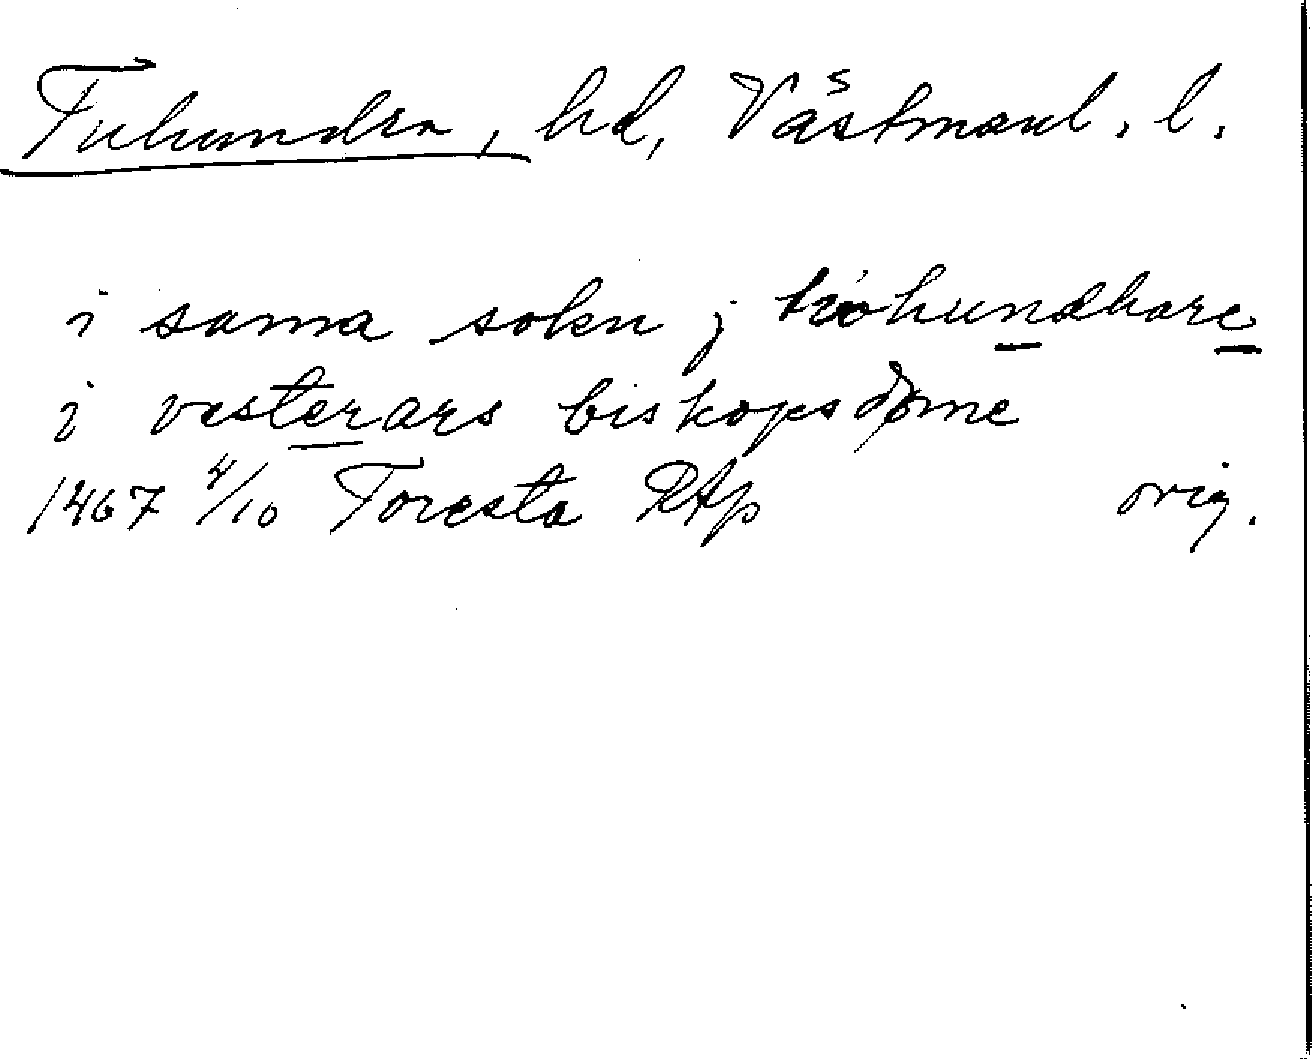 Tuhundra, hd, Västmanl. l.
i sama sokn j tiohundhare
i vesterars biskopsdøme
1467 4/10 Toresta RAp orig.